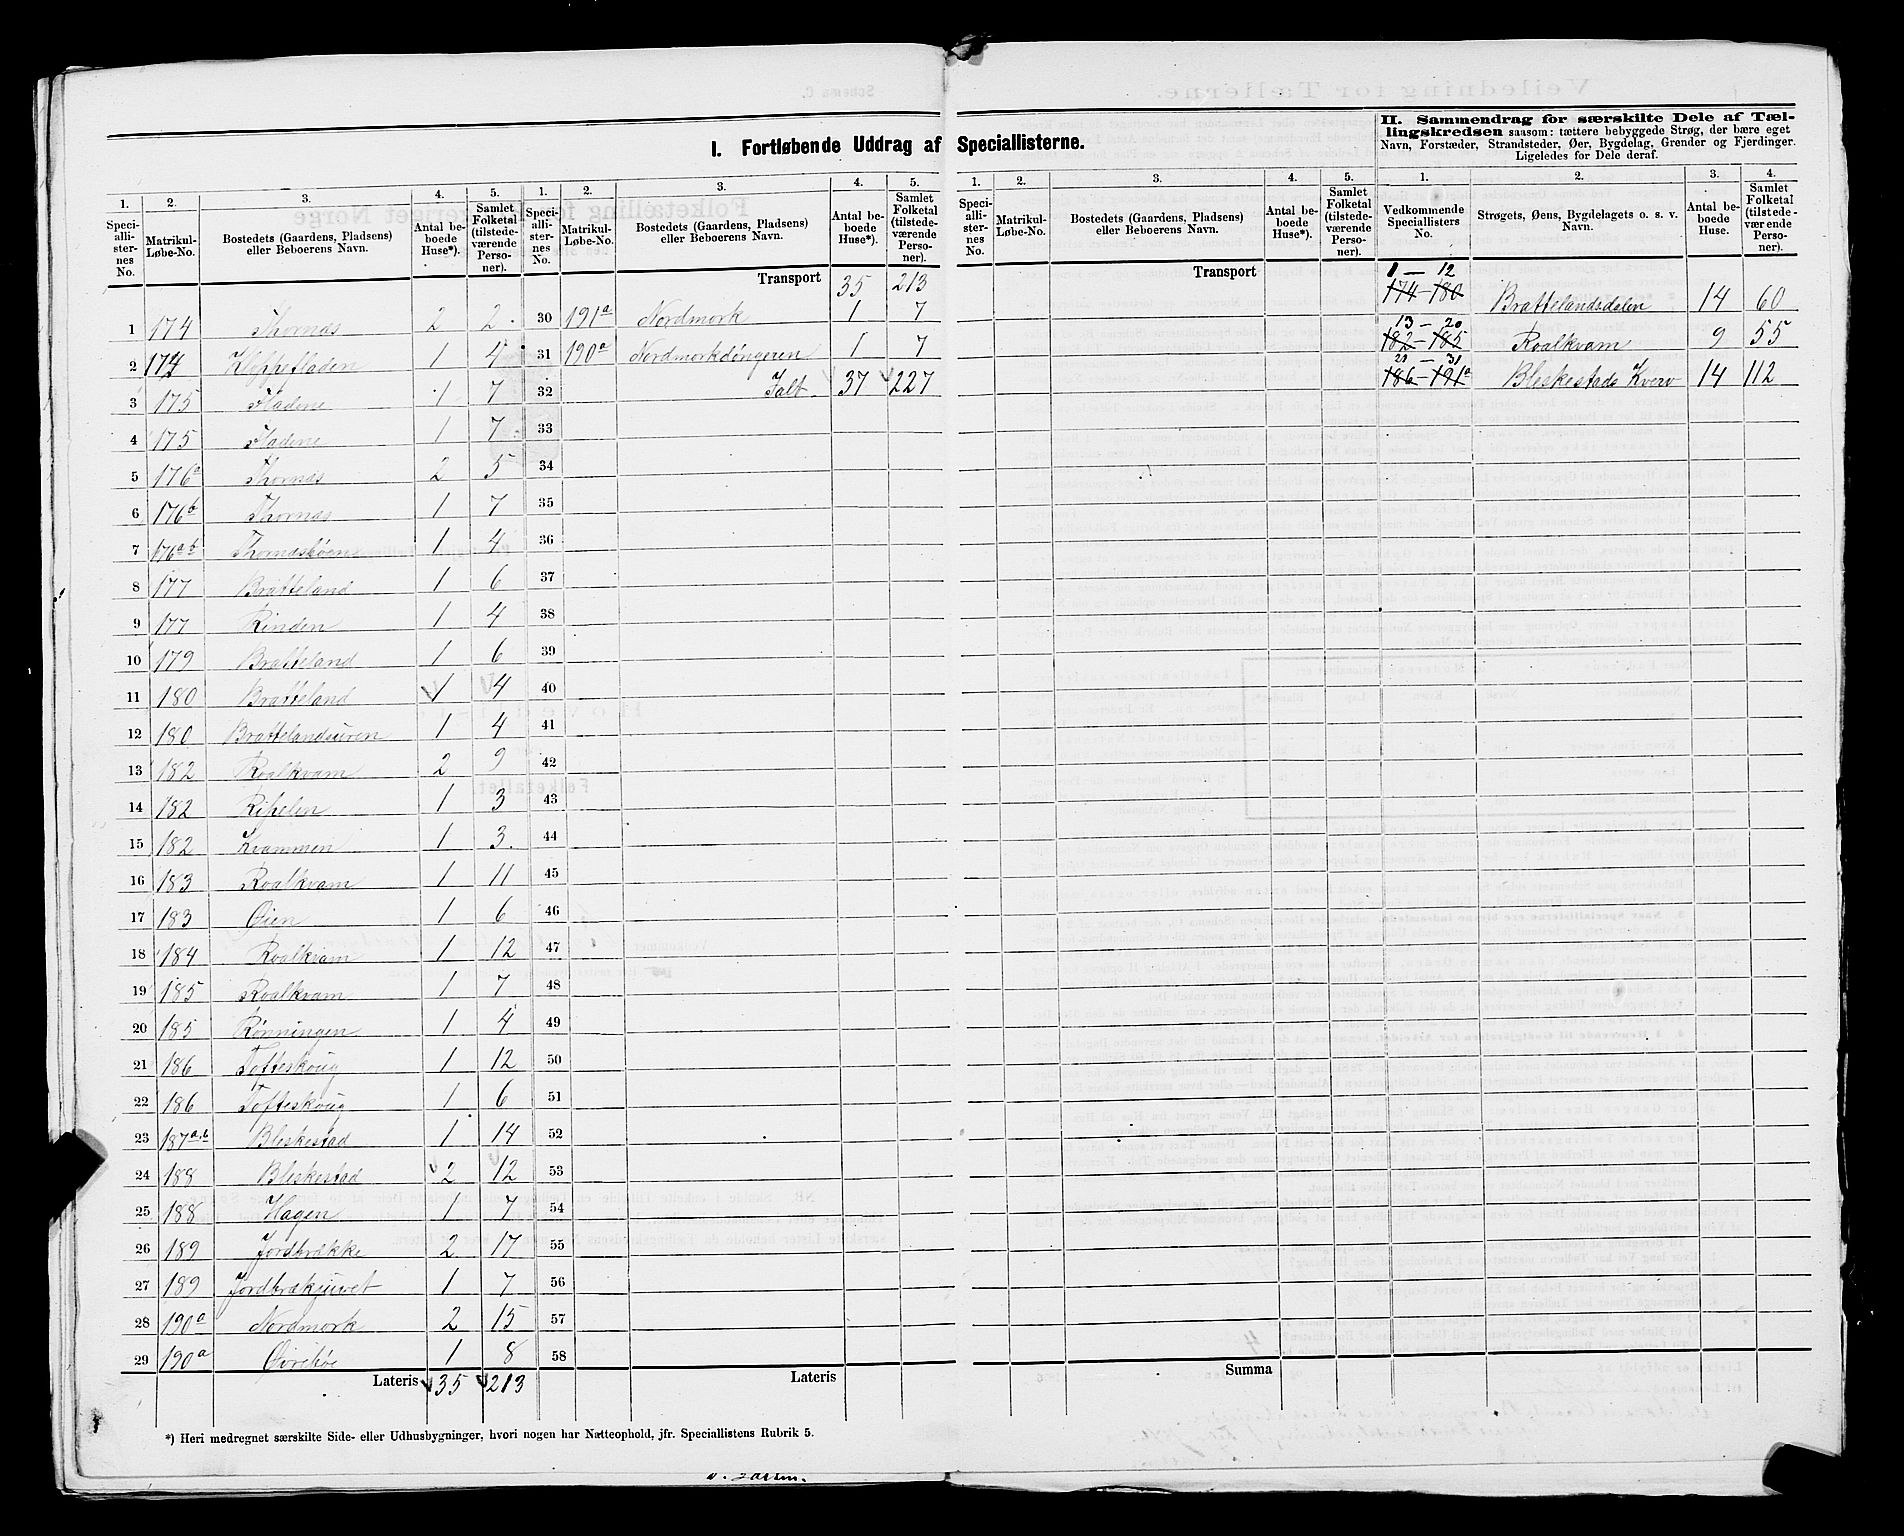 I. Fortløbende Uddrag af Speciallisterne.
II. Sammendrag for særskilte Dele af Tæl-
lingskredsen saasom: tættere bebyggede Strøg, der bære eget
Navn, Forstæder, Strandsteder, Øer, Bygdelag, Grender og Fjerdinger.
Ligeledes for Dele deraf.
1. 2. 3. 4. 5. 1. 2. 3. 4. 5. 1. 2. 3. 4. 5. 1. 2. 3. 4.
Speci-alli-ster-nes No. Matrikul-Løbe-No. Bostedets (Gaardens, Pladsens) eller Beboerens Navn. Antal be-boede Huse*). Samlet Folketal (tilstede-værende Perso-ner).
Speci-alli-ster-nes No. Matrikul-Løbe-No. Bostedets (Gaardens, Pladsens) eller Beboerens Navn. Antal be-boede Huse*). Samlet Folketal (tilstede-værende Perso-ner).
Speci-alli-ster-nes No. Matrikul-Løbe-No. Bostedets (Gaardens, Pladsens) eller Beboerens Navn. Antal be-boede Huse*). Samlet Folketal (tilstede-værende Perso-ner).
Vedkommende Speciallisters No. Strøgets, Øens, Bygdelagets o. s. v. Navn. Antal be-boede Huse. Samlet Folketal (tilstede-værende Personer).
1 174 Thornæs 2 2
2 174 Kleppefladen 1 4
3 175 Fladene 1 7
4 175 Fladene 1 7
5 176a Thornæs 2 5
6 176b Thornæs 1 7
7 176a b 1 4
8 177 Bratteland 1 6
9 177 Rinden 1 4
10 179 Bratteland 1 6
11 180 Bratteland 1 4
12 180 Brattelandsuren 1 4
13 182 Roalkvam 2 9
14 182 Ripelen 1 3
15 182 Kvammen 1 3.
16 183 Roalkvam 1 11
17 183 Øien 1 6
18 184 Roalkvam 1 12
19 185 Roalkvam 1 7
20 185 Rønningen 1 4
21 186 Tofteskoug 1 12
22 186 Tofteskoug 1 6
23 187a,b Bleskestad 1 14
24 188 Bleskestad 2 12
25 188 Hagen 1 7
26 189 Jordbrække 2 17
27 189 Jordbrækjuvet 1 7
28 190a Nordmork 2 15
29 190a Øvrebøe 1 8
Lateris 35 213
Transport 35 213
30 191a Nordmork 1 7
31 190a Nordmorkdöngeren 1 7
32 Ialt 37 227
33
34
35
36
37
38
39
40
41
42
43
44
45
46
47
48
49
50
51
52
53
54
55
56
57
58
Lateris
Transport
Summa
1 — 12
174–180 Brattelandsdelen 14 60
13 — 20
182–185 Roalkvam 9 55
21 — 31
186–191a Bleskestads Kverv 14 112
*) Heri medregnet særskilte Side- eller Udhusbygninger, hvori nogen har Natteophold, jfr. Speciallistens Rubrik 5.